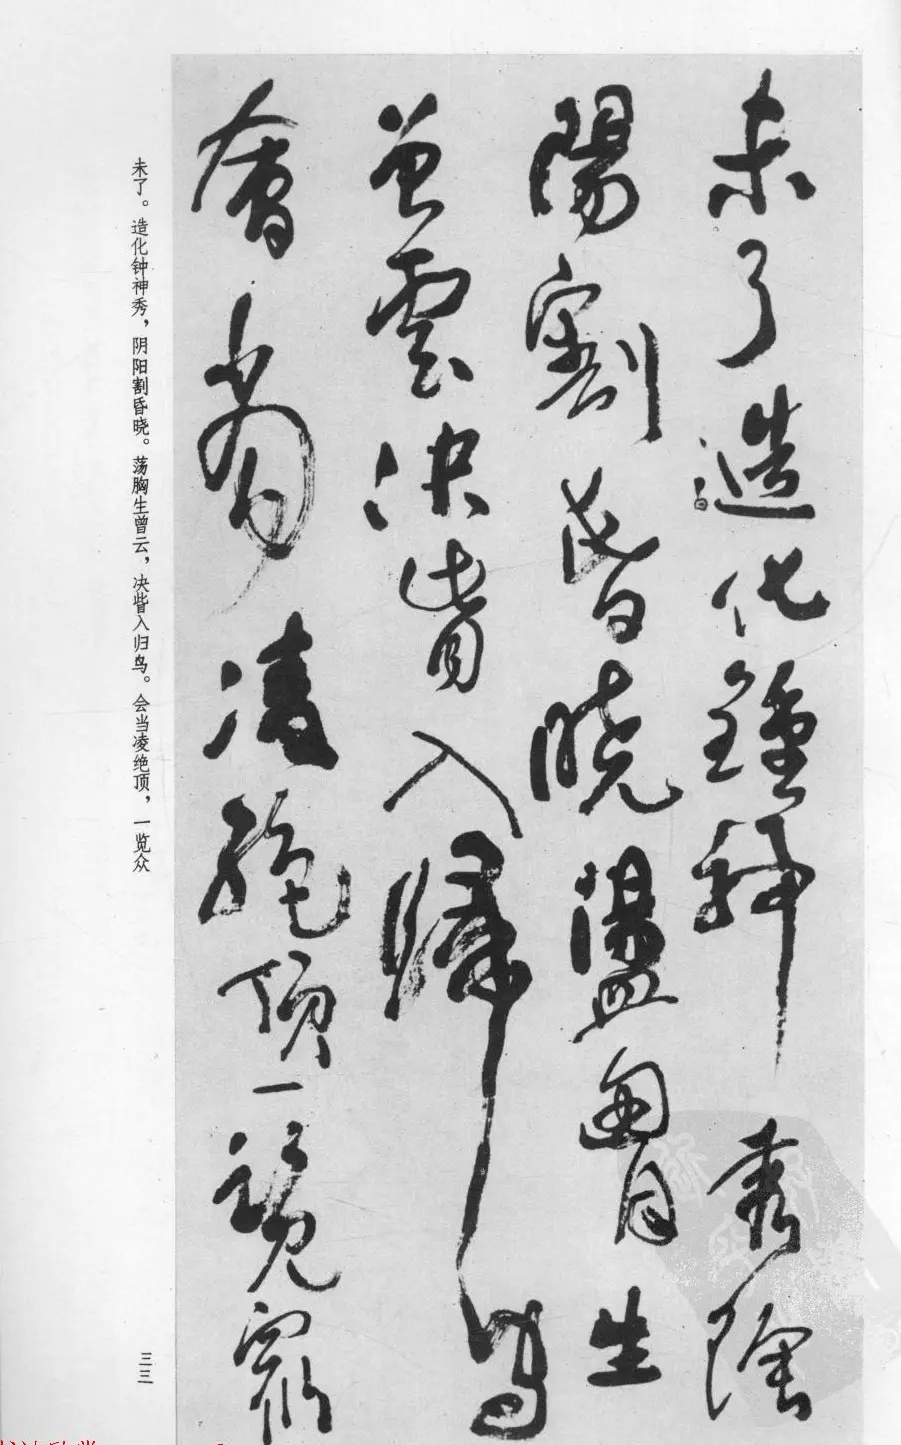 未了造化鍾神秀陰
陽割昏曉盪胷生
曾雲決眥入歸鳥
會當凌絶頂一覽衆
未了。造化钟神秀，阴阳割昏晓。荡胸生曾云，决眥入归鸟。会当凌绝顶，一览众
三三